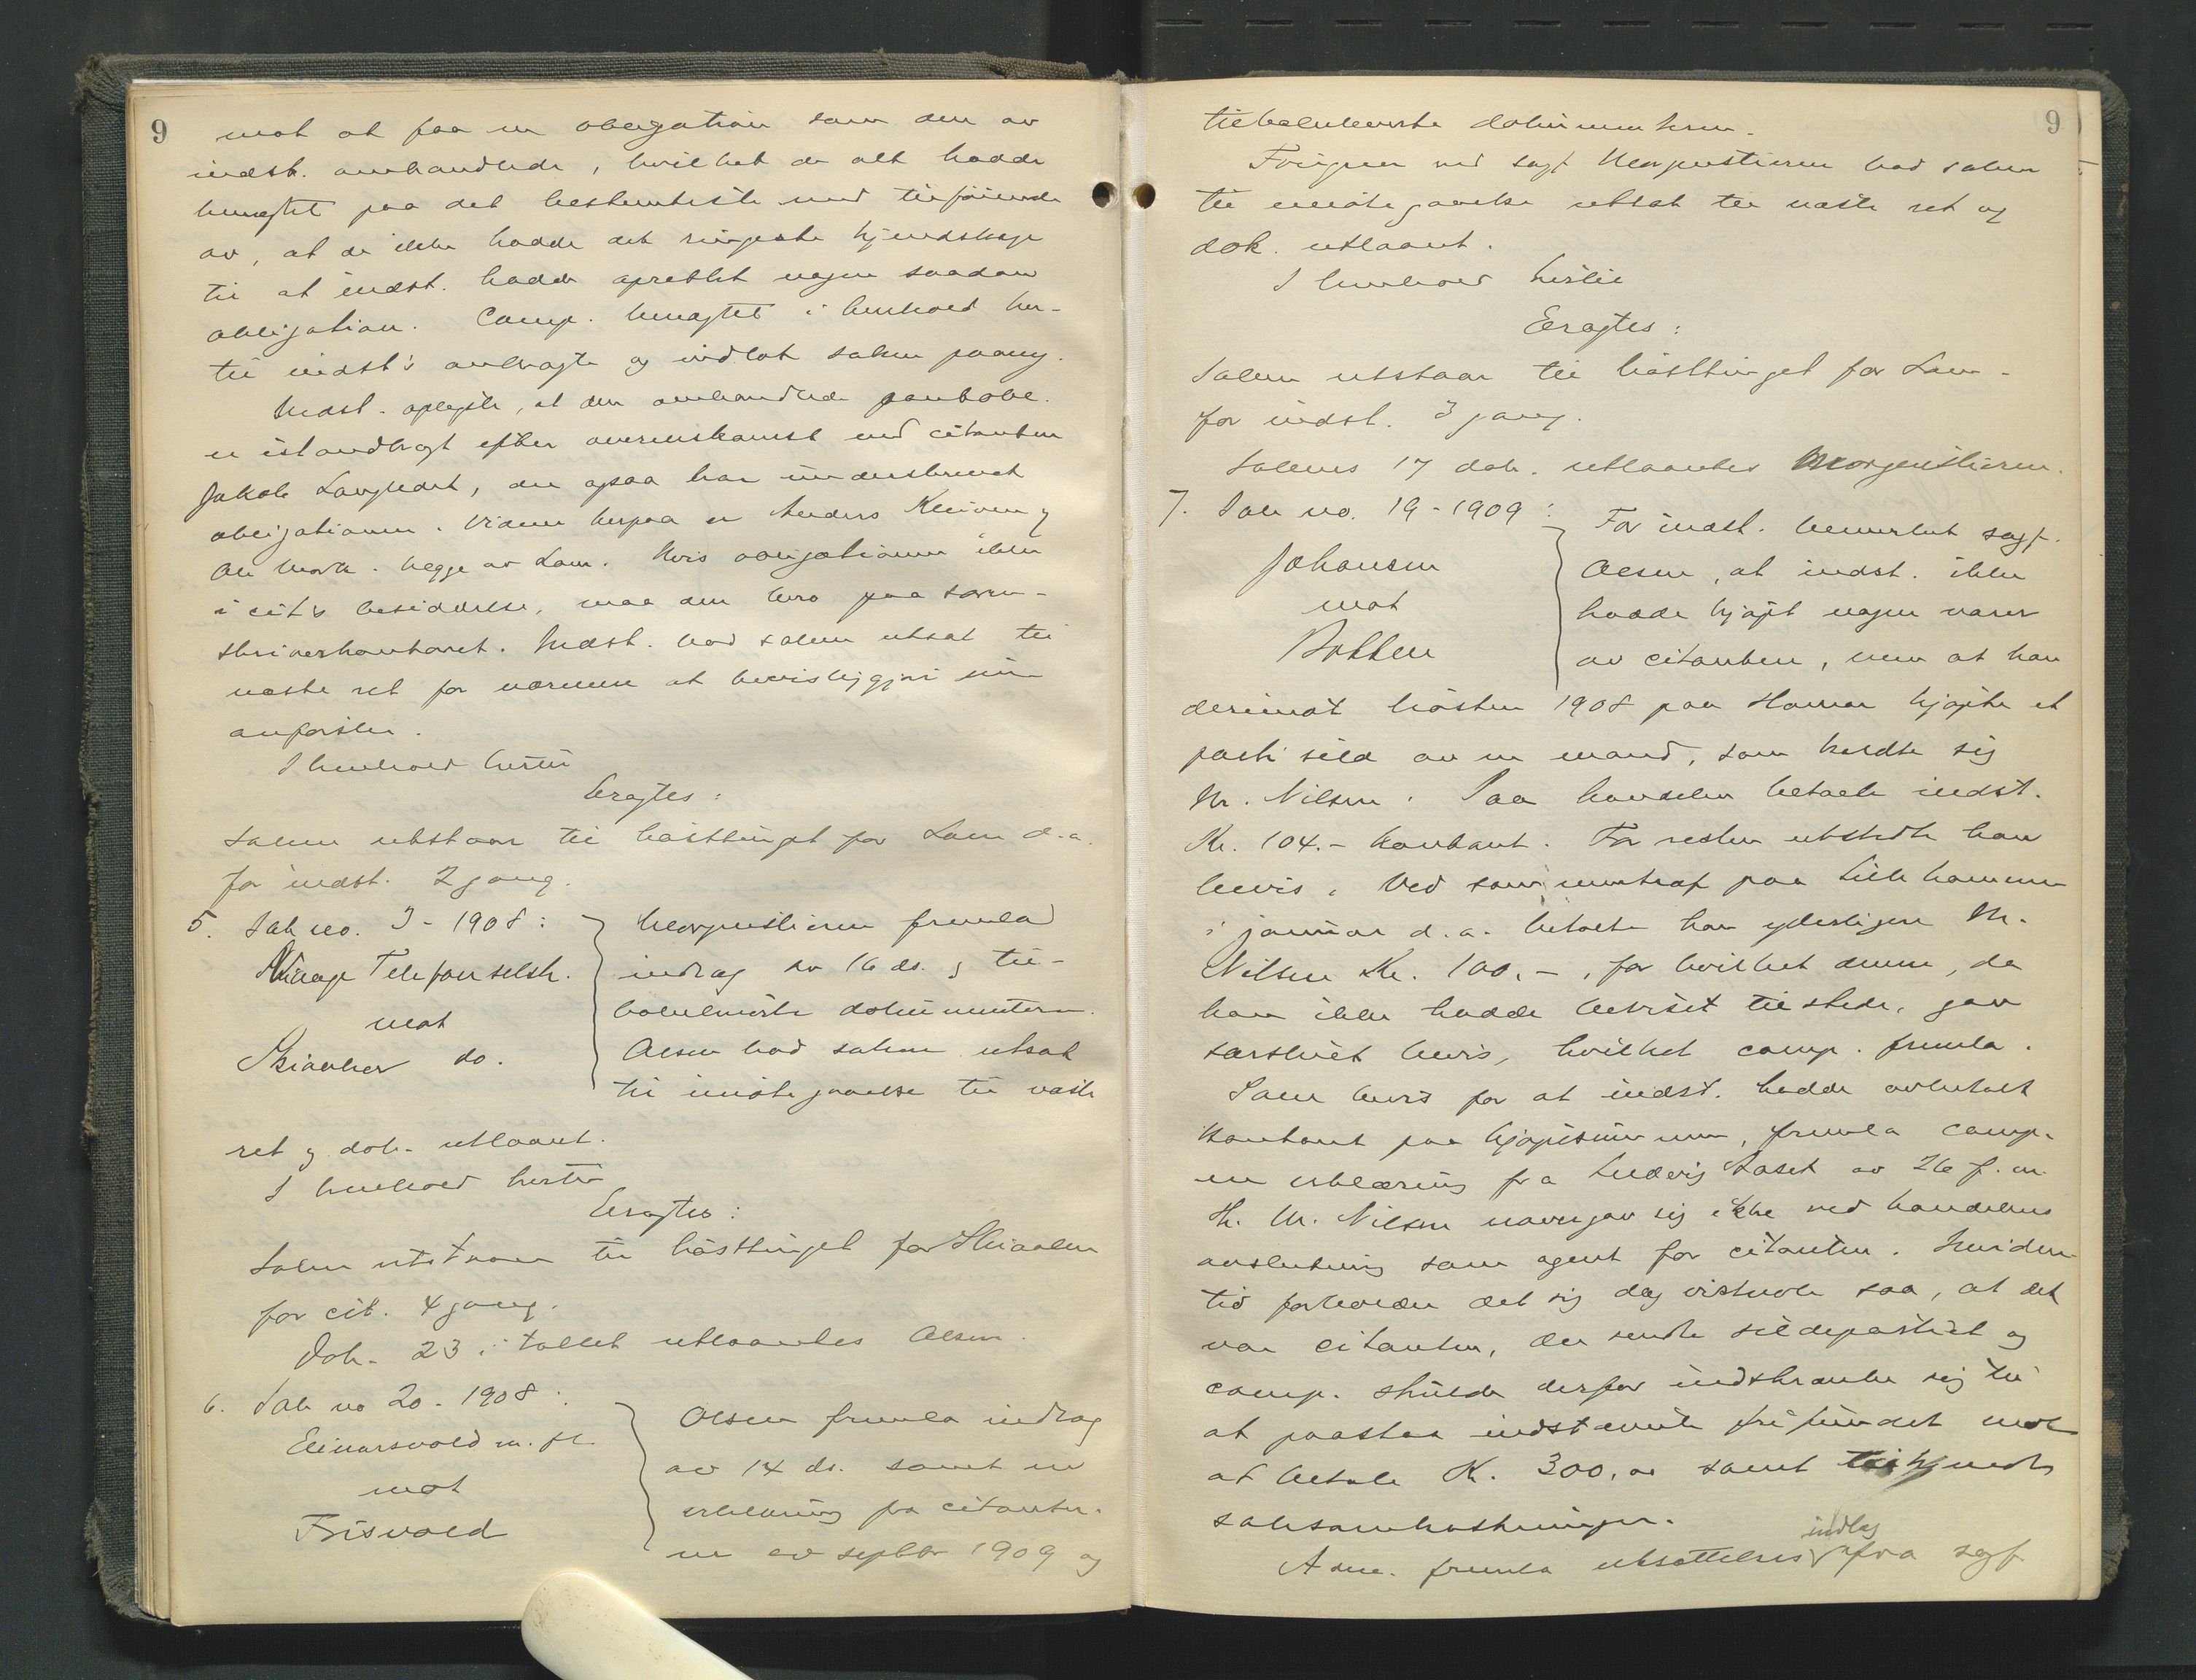 9
mot at faa en obligation som den av
indst. omhandlede, hvilket de alt hadde
benegtet paa det bestemteste med tilføiende
av, at de ikke hadde det ringeste kjendskap
til at indst. hadde oprettet nogen saadan
obligation. Comp. benegtet i henhold her-
til indst's anbragte og indlot saken paany.
Indst. oplyste, at den omhandlede pantobl.
er istandbragt efter overenskomst med citanten
Jakob Langedet, der ogsaa har underskrevet
obligationen. Vidner herpaa er Anders Kleiven og
Ole Mork. begge av Lom. Hvis obligationen ikke
i cit's besiddelse, maa den bero paa soren-
skriverkontoret. Indst. bad saken utsat til
næste ret for nærmere at bevisliggjøre sin
anførsler.
I henhold hertil
Eragtes:
Saken utstaar til høsttinget for Lom d.a.
for indst. 2 gang.
5. Sak no. 3 - 1908:
Vaage Telefonselsk.
mot
Skiaaker do.
Morgenstierne fremla
indlæg av 16 ds. og til-
bakeleverte dokumenterne.
Olsen bad saken utsat
til imøtegaaelse til næste
ret og dok. utlaant.
I henhold hertil
Eragtes:
Saken utstaar til høsttinget for Skiaaker
for cit. 4 gang.
Dok. 23 i tallet utlaantes Olsen.
6. Sak no 20 - 1908:
Einarsvold m. fl.
mot
Frisvold
Olsen fremla indlæg
av 14 ds. samt en
erklæring fra citanter-
ne av septbr 1909 og
9
tilbakeleverte dokumenterne.
Foreignen ved sagf Morgenstierne bad saken
til imøtegaaelse utsat til næste ret og
dok. utlaant.
I henhold hertil
Eragtes:
Saken utstaar til høsttinget for Lom -
for indst. 3 gang.
Sakens 17 dok. utlaantes Morgenstierne.
7. Sak no. 19 - 1909:
Johansen
mot
Bakken
For indst. bemerket sagf.
Olsen, at indst. ikke
hadde kjøpt nogen varer
av citanten, men at han
derimot høsten 1908 paa Hamar kjøpte et
parti sild av en mand, som kaldte sig
M. Nilsen. Paa handelen betalte indst.
Kr. 104.- kontant. For resten utstedte han
bevis. Ved sammentræf paa Lillehammer
i januar d.a. betalte han yderligere M.
Nilsen Kr. 100.-, for hvilket denne, da
han ikke hadde beviset tilstede, gav
særskilt bevis, hvilket comp. fremla.
Som bevis for at indst. hadde avbetalt
kontant paa kjøpesummen, fremla comp.
en erklæring fra Ludvig Laset av 26 f. m.
Hr. M. Nilsen navngav sig ikke ved handelens
avslutning som agent for citanten. Imiden-
tid forholder det sig dog vistnok saa, at det
var citanten, der sendte sildepartiet og
comp. skulde derfor indskrænke sig til
at paastaa indstævnte frifundet mot
at betale Kr. 300,00 samt tilkjendt
saksomkostninger.
Aane. fremla utsættelsesindlæg fra sagf